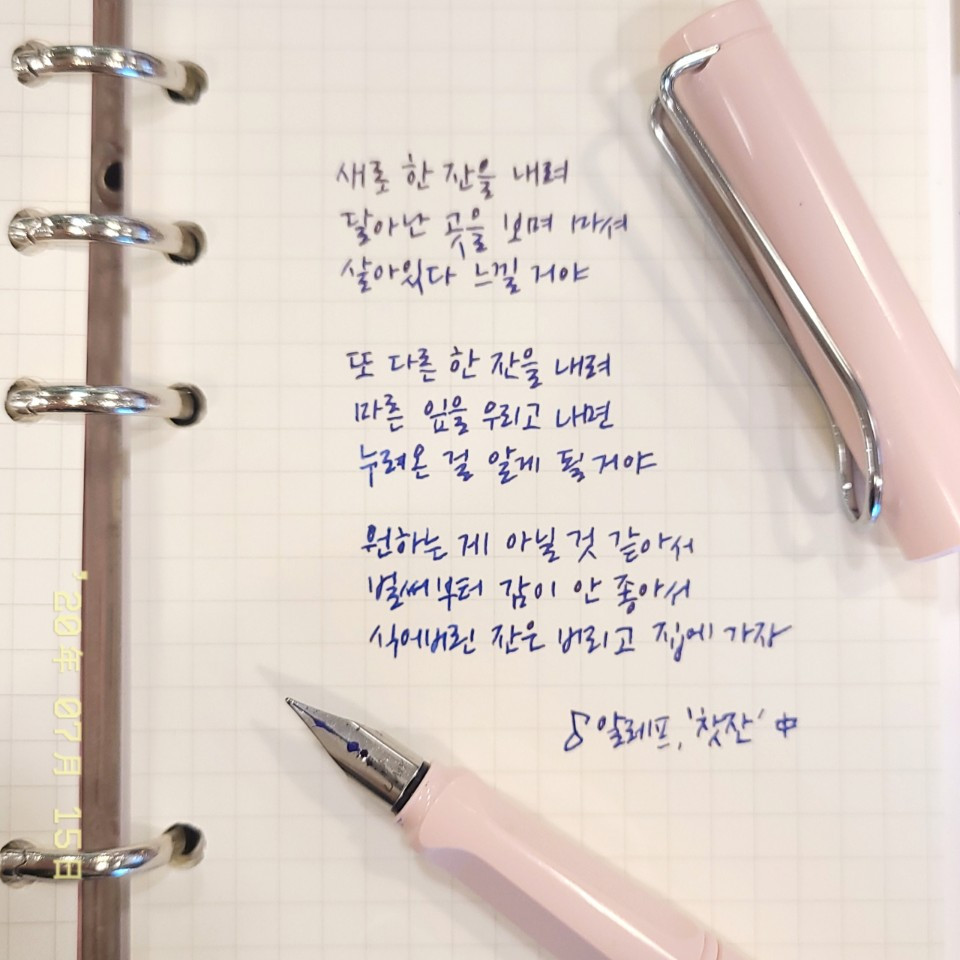 새로 한 잔을 내려
달아난 곳을 보며 마셔
살아있다 느낄 거야
또 다른 한 잔을 내려
마른 잎을 우리고 내면
누려온 걸 알게 될 거야
원하는 게 아닐 것 같아서
벌써부터 감이 안 좋아서
식어버린 잔은 버리고 집에 가자
♪ 알레프, '찻잔' 中
'20年 07月 15日